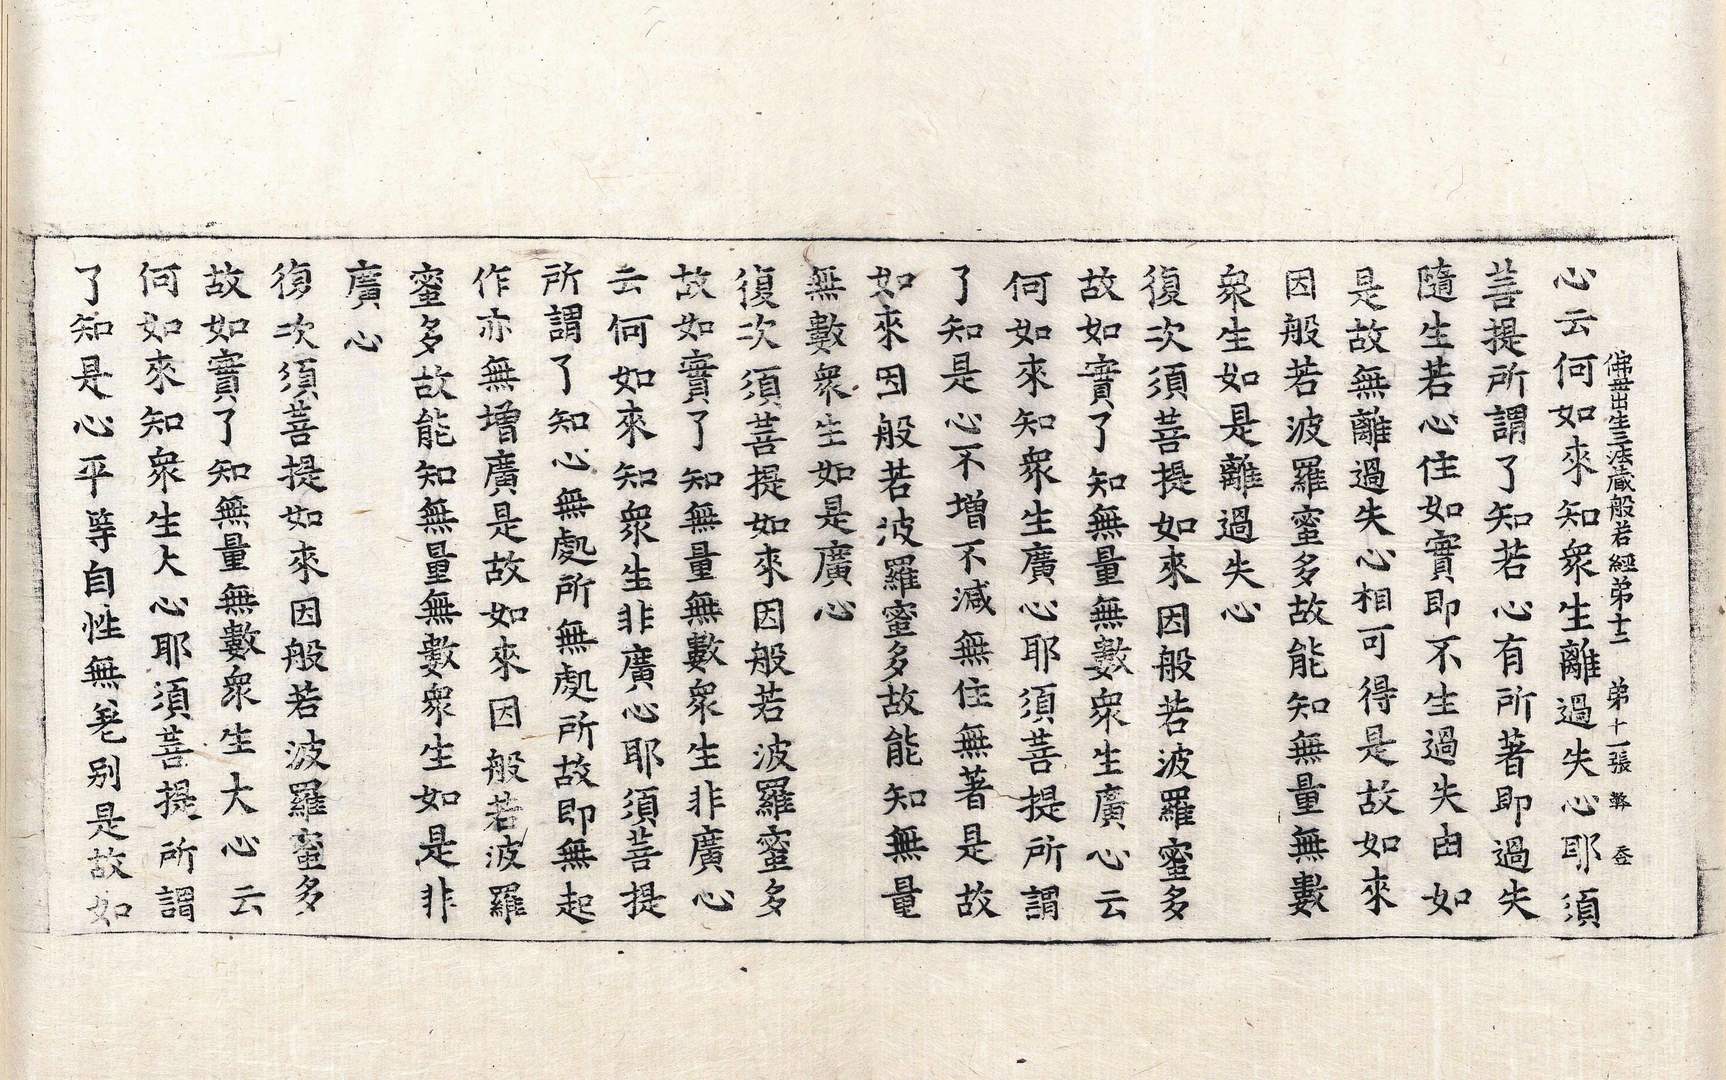 佛母出生三法藏般若經第十二 第十一張 斡 岙
心云何如來知衆生離過失心耶須
菩提所謂了知若心有所著即過失
隨生若心住如實即不生過失由如
是故無離過失心相可得是故如來
因般若波羅蜜多故能知無量無數
衆生如是離過失心
復次須菩提如來因般若波羅蜜多
故如實了知無量無數衆生廣心云
何如來知衆生廣心耶須菩提所謂
了知是心不增不減無住無著是故
如來因般若波羅蜜多故能知無量
無數衆生如是廣心
復次須菩提如來因般若波羅蜜多
故如實了知無量無數衆生非廣心
云何如來知衆生非廣心耶須菩提
所謂了知心無處所無處所故即無起
作亦無增廣是故如來因般若波羅
蜜多故能知無量無數衆生如是非
廣心
復次須菩提如來因般若波羅蜜多
故如實了知無量無數衆生大心云
何如來知衆生大心耶須菩提所謂
了知是心平等自性無差別是故如